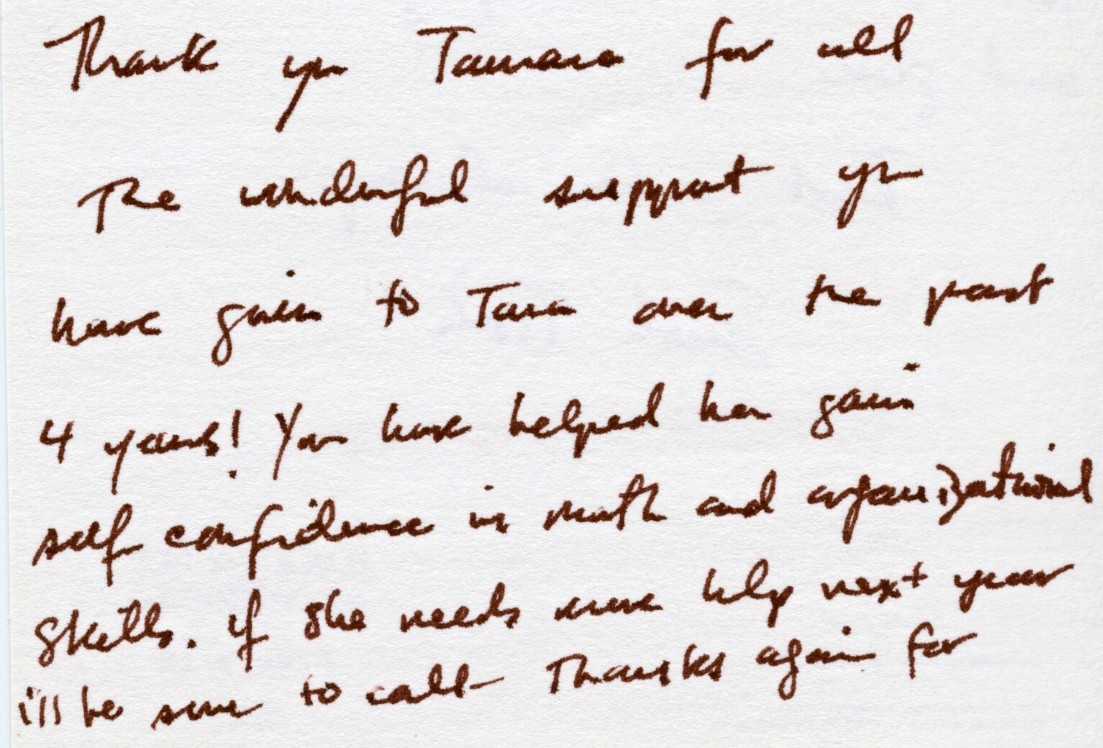 Thank you Tamara for all
The wonderful support you
have given to Tara over the past
4 years! You have helped her gain
self confidence in math and organizational
skills. If she needs more help next year
i'll be sure to call - Thanks again for